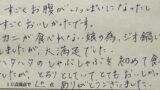 すごくお腹がいっぱいになったし
すごくおいしかったです。
カニが食べれない娘の為、ジオ鍋に
しましたが、大満足でした。
ハタハタのしゃぶしゃぶを初めて食べ
たが、とろりとしてとてもおいし
ありがとうございました。